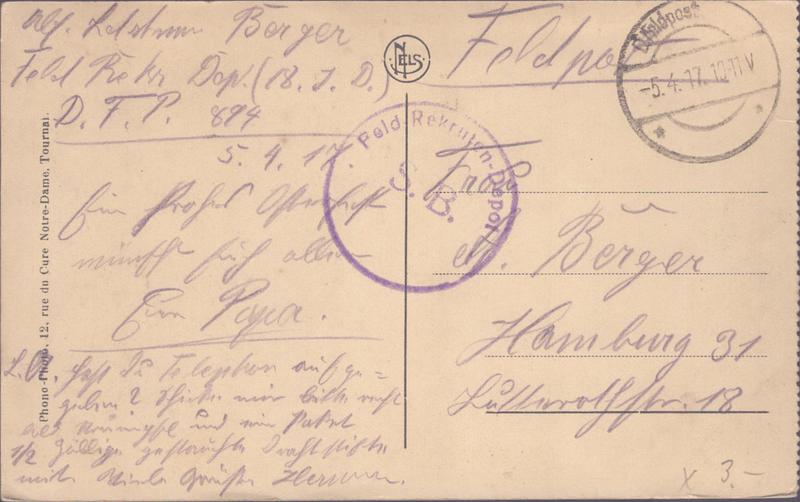 Berger
Feld Rekr. Dep. (18. I. D.)
D. F. P. 894
5. 4. 17.
Ein frohes Osterfest
wünscht Euch allen
Euer Papa.
L. A. Hast Du Telephon aufge=
geben? Schicke mir bitte
und ein Paket
1/2 zöllige Drahtstifte
mit. Viele Grüße Hermann.
Phono-Photo, 12, rue du Cure Notre-Dame, Tournai.
NELS
Feldpost
K.D. Feldpost
-5. 4. 17. 10-11 V
Feld-Rekruten-Depot
S. B.
Frau
Berger
Hamburg 31
Lutterothstr. 18
x 3.-